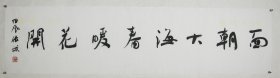 面朝大海春暖花開